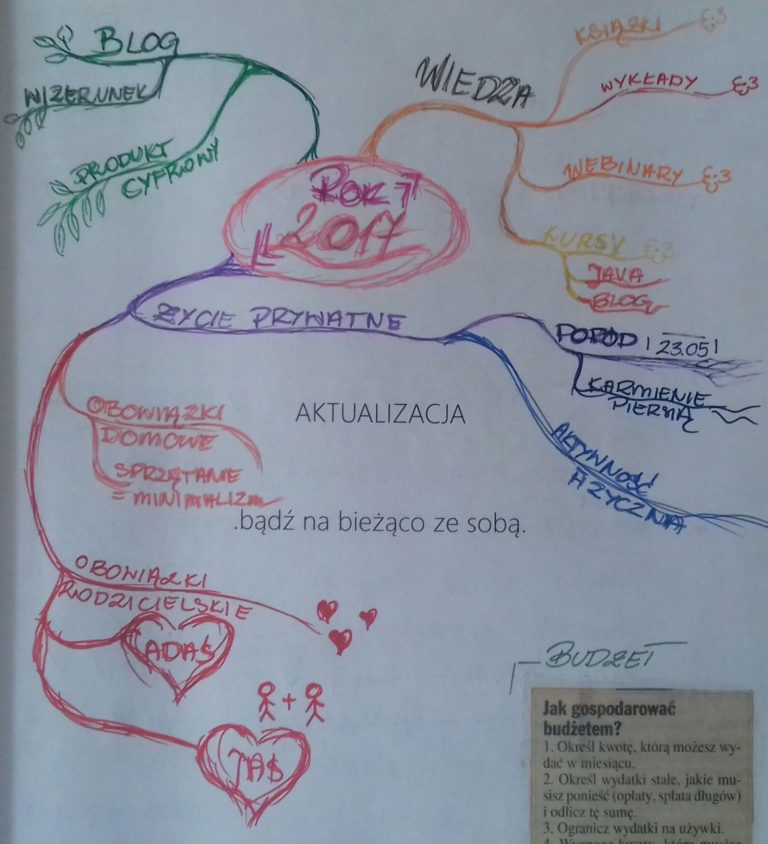 BLOG
WIZERUNEK
PRODUKT
CYFROWY
WIEDZA
KSIĄŻKI
WYKŁADY
WEBINARY
KURSY
JAVA
BLOG
ROK
2017
ŻYCIE PRYWATNE
PORÓD 23.05
KARMIENIE
PIERSIĄ
AKTYWNOŚĆ
FIZYCZNA
OBOWIĄZKI
DOMOWE
SPRZĄTANIE
= MINIMALIZM
AKTUALIZACJA
.bądź na bieżąco ze sobą.
OBOWIĄZKI
RODZICIELSKIE
ADAŚ
+
JAŚ
BUDŻET
Jak gospodarować
budżetem?
1. Określ kwotę, którą możesz wy-
dać w miesiącu.
2. Określ wydatki stałe, jakie mu-
sisz ponieść (opłaty, spłata długów)
i odlicz tę sumę.
3. Ogranicz wydatki na używki.